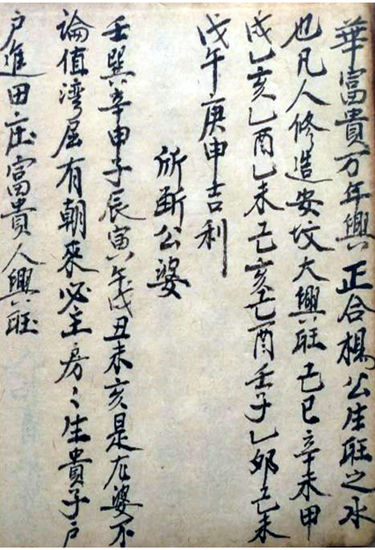 華富貴万年興正合楊公生旺之水
也凡人修造安坟大興旺己巳辛未甲
戌乙亥乙酉乙未乙亥乙酉壬子乙卯己未
戊午庚申吉利
所断公婆
壬巽辛申子辰寅午戌丑未亥是庄婆不
論值湾屈有朝來必主房〻生貴子戶
戶進田庄富貴人興旺